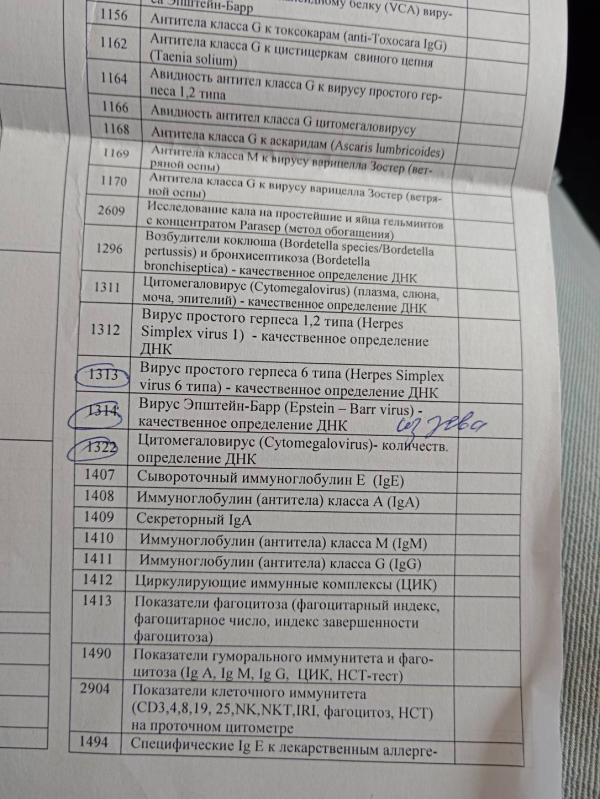 са Эпштейн-Барр
белку (VCA) виру-
1156 Антитела класса G к токсокарам (anti-Toxocara IgG)
1162 Антитела класса G к цистицеркам свиного цепня
(Taenia solium)
1164 Авидность антител класса G к вирусу простого гер-
песа 1,2 типа
1166 Авидность антител класса G цитомегаловирусу
1168 Антитела класса G к аскаридам (Ascaris lumbricoides)
1169 Антитела класса М к вирусу варицелла Зостер (вет-
ряной оспы)
1170 Антитела класса G к вирусу варицелла Зостер (ветря-
ной оспы)
2609 Исследование кала на простейшие и яйца гельминтов
с концентратом Parasep (метод обогащения)
1296 Возбудители коклюша (Bordetella species/Bordetella
pertussis) и бронхисептикоза (Bordetella
bronchiseptica) - качественное определение ДНК
1311 Цитомегаловирус (Cytomegalovirus) (плазма, слюна,
моча, эпителий) - качественное определение ДНК
1312 Вирус простого герпеса 1,2 типа (Herpes
Simplex virus 1) - качественное определение
ДНК
1313 Вирус простого герпеса 6 типа (Herpes Simplex
virus 6 типа) - качественное определение ДНК
1314 Вирус Эпштейн-Барр (Epstein – Barr virus) -
качественное определение ДНК из зева
1322 Цитомегаловирус (Cytomegalovirus)- количеств.
определение ДНК
1407 Сывороточный иммуноглобулин Е (IgE)
1408 Иммуноглобулин (антитела) класса А (IgA)
1409 Секреторный IgA
1410 Иммуноглобулин (антитела) класса М (IgM)
1411 Иммуноглобулин (антитела) класса G (IgG)
1412 Циркулирующие иммунные комплексы (ЦИК)
1413 Показатели фагоцитоза (фагоцитарный индекс,
фагоцитарное число, индекс завершенности
фагоцитоза)
1490 Показатели гуморального иммунитета и фаго-
цитоза (Ig A, Ig M, Ig G, ЦИК, НСТ-тест)
2904 Показатели клеточного иммунитета
(CD3,4,8,19, 25,NK,NKT,IRI, фагоцитоз, НСТ)
на проточном цитометре
1494 Специфические Ig E к лекарственным аллерге-